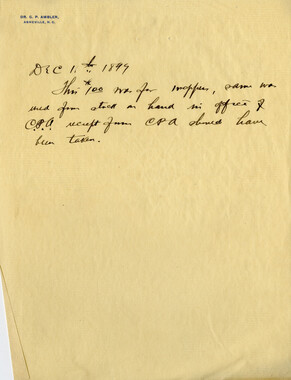 DR. C. P. AMBLER,
ASHEVILLE, N. C.
Dec 1.st 1899
This was for moppers, same was
used from stock on hand in office of
C.P.A. receipt from C.P.A should have
been taken.